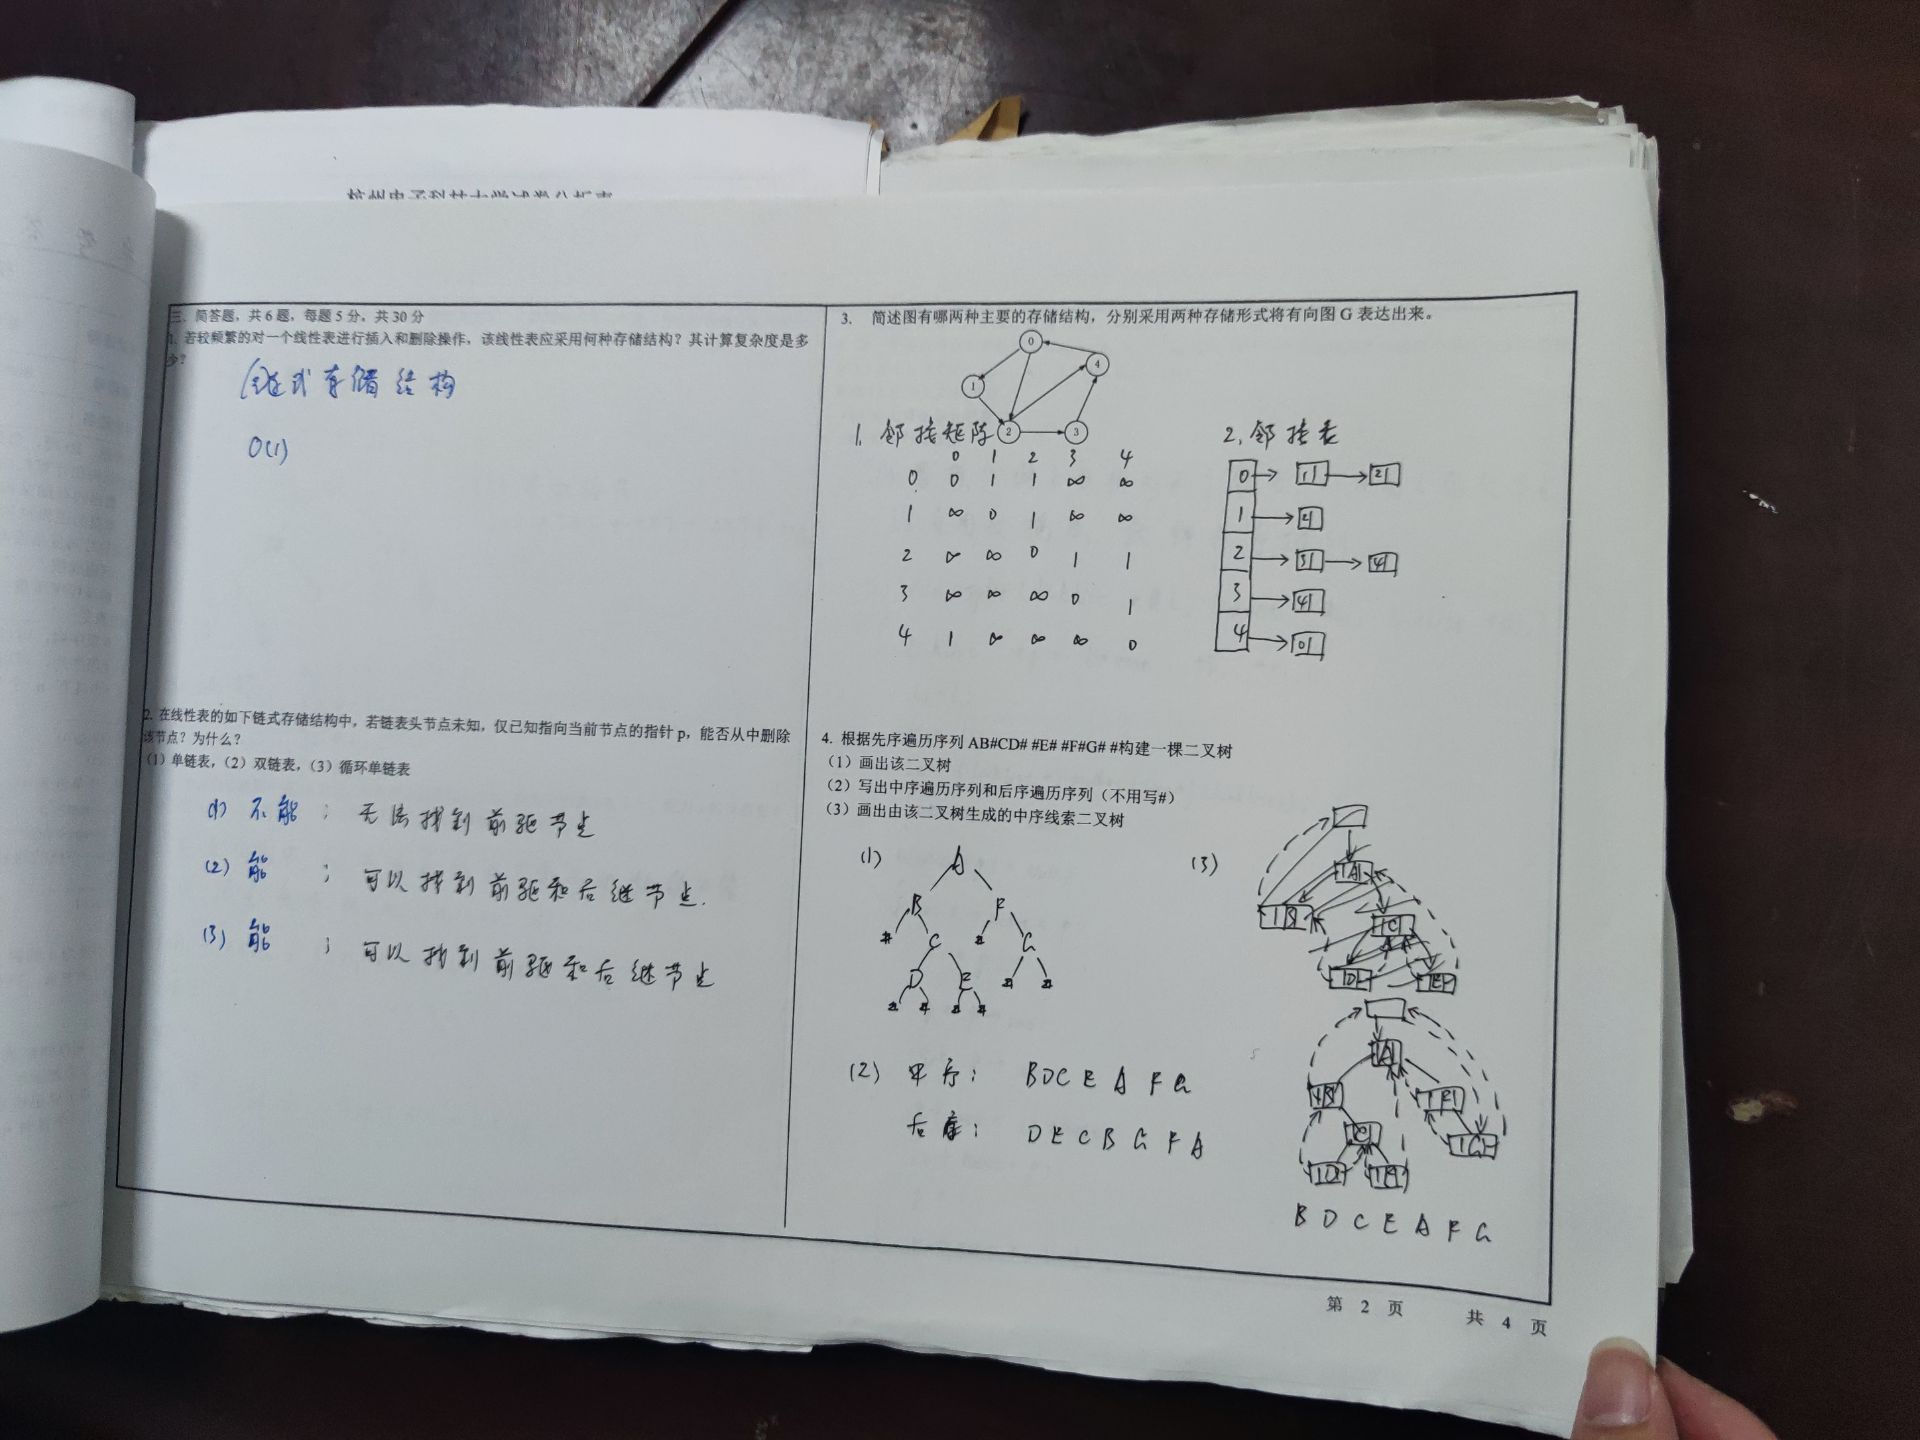 三、简答题，共6题，每题5分，共30分
1. 若较频繁的对一个线性表进行插入和删除操作，该线性表应采用何种存储结构？其计算复杂度是多
少？
链式存储结构
O(1)
2. 在线性表的如下链式存储结构中，若链表头节点未知，仅已知指向当前节点的指针p，能否从中删除
该节点？为什么？
（1）单链表，（2）双链表，（3）循环单链表
(1) 不能； 无法找到前驱节点
(2) 能 ； 可以找到前驱和后继节点.
(3) 能 ； 可以找到前驱和后继节点
3. 简述图有哪两种主要的存储结构，分别采用两种存储形式将有向图G表达出来。
0
4
1
2 3
1. 邻接矩阵
0 1 2 3 4
0 0 1 1 ∞ ∞
1 ∞ 0 1 ∞ ∞
2 ∞ ∞ 0 1 1
3 ∞ ∞ ∞ 0 1
4 1 ∞ ∞ ∞ 0
2. 邻接表
0 1 2
1 2
2 3 4
3 4
4 0
4. 根据先序遍历序列AB#CD# #E# #F#G# #构建一棵二叉树
（1）画出该二叉树
（2）写出中序遍历序列和后序遍历序列（不用写#）
（3）画出由该二叉树生成的中序线索二叉树
(1)
A
B F
# C # G
D E # #
# # # #
(2) 中序： B D C E A F G
后序： D E C B G F A
(3)
A
B
C
D E
A
B F
C G
D E
B D C E A F G
第 2 页 共 4 页